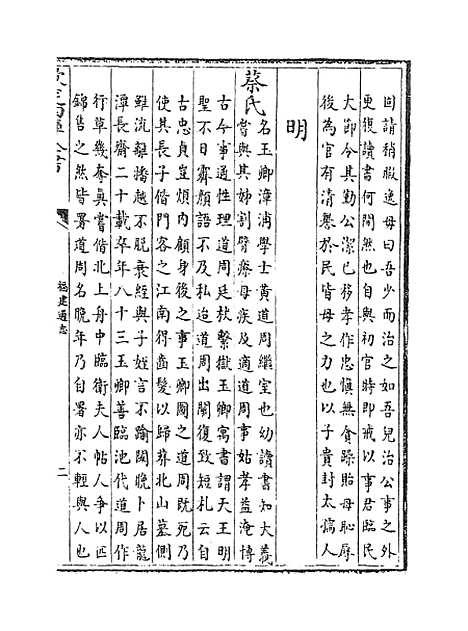 因請稍暇逸母曰吾少而治之如吾兒治公事之外
更復讀書何閒然也自與初官時即戒以事君臨民
大節今其勤公潔已移孝作忠慎無貪躁貽母恥辱
後為官有清譽於民皆母之力也以子貴封太孺人
明
蔡氏名玉卿漳浦學士黃道周繼室也幼讀書知大義
嘗與其姊割臂療母疾及適道周事姑孝益淹博
古今事通性理道周廷杖繫獄玉卿寓書謂天王明
聖不日霽顏語不及私迨道周出閩復致短札云自
古忠貞豈煩内顧身後之事玉卿圖之道周既死乃
使其長子偕門客之江南得齒髮以歸葬北山墓側
雖流離播越不脫衰絰與子姪言不踰閾晚卜居龍
潭長齋二十載卒年八十三玉卿善臨池代道周作
行草幾奪真嘗偕北上舟中臨衛夫人帖人争以匹
錦售之然皆署道周名晚年乃自署亦不輕與人也
福建通志
二